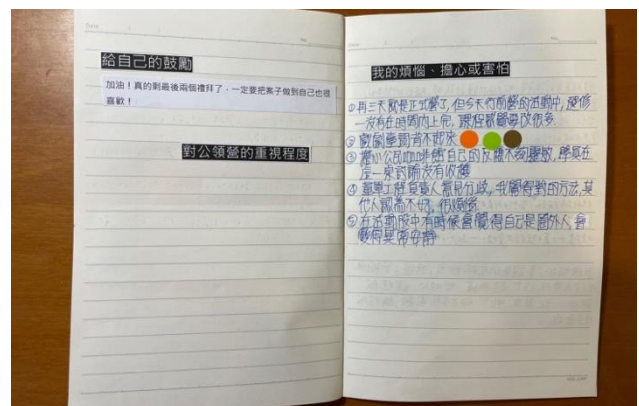 給自己的鼓勵
加油！真的剩最後兩個禮拜了，一定要把案子做到自己也很
喜歡！
對公領營的重視程度
我的煩惱、擔心或害怕
①再三天就是正式營了，但今天行前營的活動中，慢修
一沒有在時間內上完，課程都屬要改很多
② 劇單獨背不起來
③ 擔心公民咖啡館自己的反應不夠靈敏，學員在
這一桌討論沒有收穫
④ 工程負責人意見分歧，我覺得對的方法，其
他人認為不好，很煩惱
⑤ 在活動股中有時候會覺得自己是局外人，會
變得異常安靜